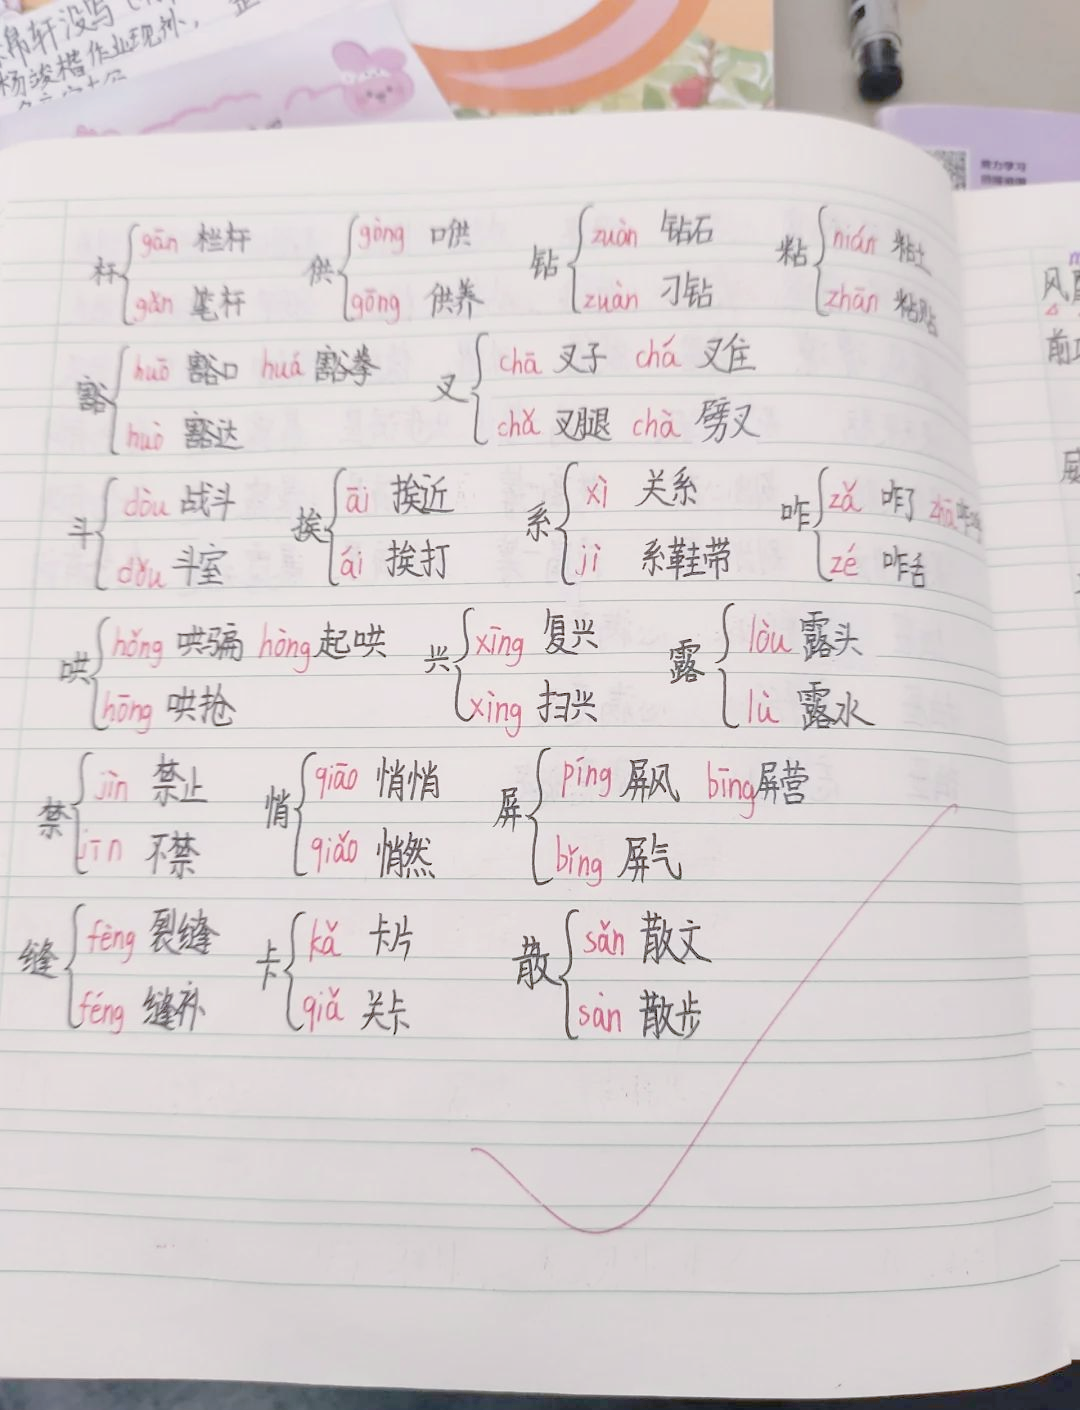 杆 gān 栏杆 供 gòng 口供 钻 zuàn 钻石 粘 nián 粘土
gǎn 笔杆 gōng 供养 zuàn 刁钻 zhān 粘贴
豁 huō 豁口 huá 豁拳 叉 chā 叉子 chá 叉住
huò 豁达 chǎ 叉腿 chà 劈叉
斗 dòu 战斗 挨 āi 挨近 系 xì 关系 咋 zǎ 咋了 zhā
dǒu 斗室 ái 挨打 jì 系鞋带 zé 咋舌
哄 hǒng 哄骗 hòng 起哄 兴 xīng 复兴 露 lòu 露头
hōng 哄抢 xìng 扫兴 lù 露水
禁 jìn 禁止 悄 qiāo 悄悄 屏 píng 屏风 bīng 屏营
jīn 不禁 qiǎo 悄然 bǐng 屏气
缝 fèng 裂缝 卡 kǎ 卡片 散 sǎn 散文
féng 缝补 qiǎ 关卡 sàn 散步